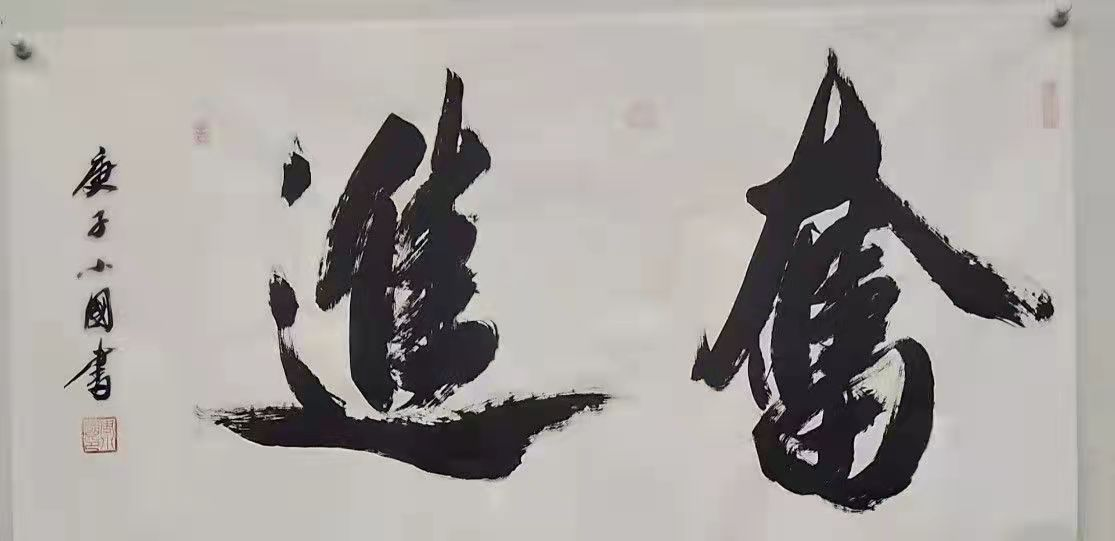 奮進
庚子小國書